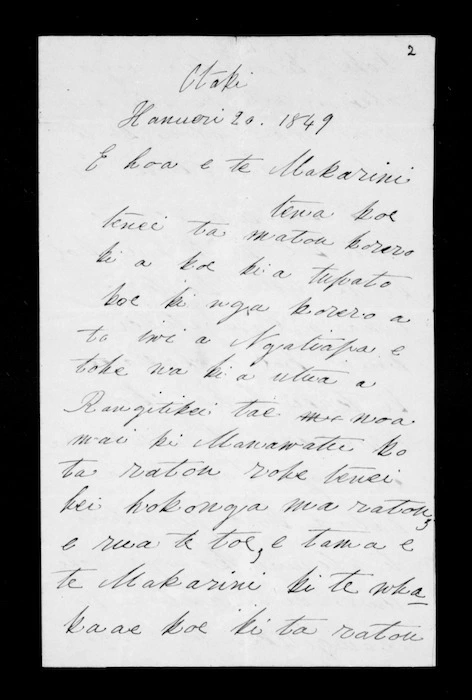 2
Otaki
Hanueri 20. 1849
E hoa e te Makarini
tena koe
tenei ta matou korero
ki a koe kia tupato
koe ki nga korero a
to iwi a Ngatiapa e
tohe na kia utua a
Rangitikei tae noa
mai ki Manawatu ko
ta ratou rohe tenei
hei hokonga ma ratou,
e rua te toe, e tama e
te Makarini ki te wha
kaae koe ki ta ratou